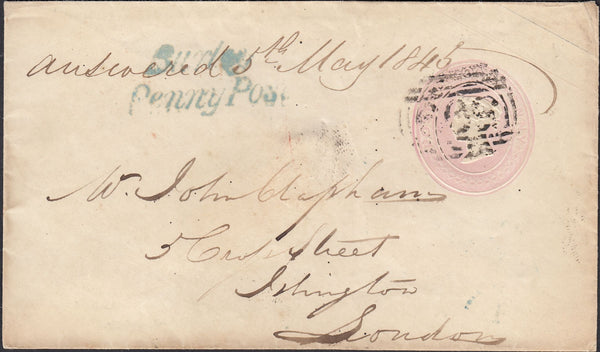 answered 5th May 1845
Penny Post
Mr John Clapham
5 Cross Street
Islington
London